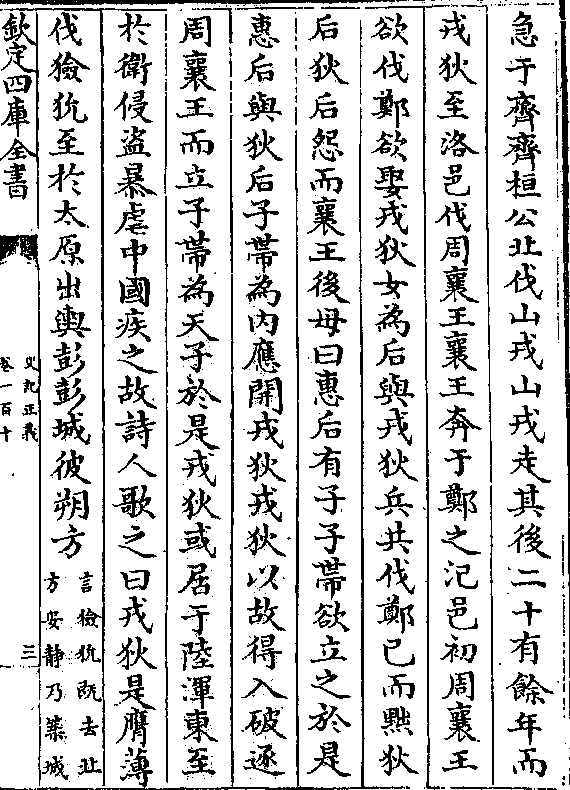 急于齊齊桓公北伐山戎山戎走其後二十有餘年而
戎狄至洛邑伐周襄王襄王奔于鄭之氾邑初周襄王
欲伐鄭欲娶戎狄女為后與戎狄兵共伐鄭已而黜狄
后狄后怨而襄王後母曰惠后有子子帶欲立之於是
惠后與狄后子帶為内應開戎狄戎狄以故得入破逐
周襄王而立子帶為天子於是戎狄或居于陸渾東至
於衛侵盜暴虐中國疾之故詩人歌之曰戎狄是膺薄
伐獫狁至於太原出輿彭彭城彼朔方言獫狁既去北
方安靜乃築城
欽定四庫全書
史記正義
卷一百十
三